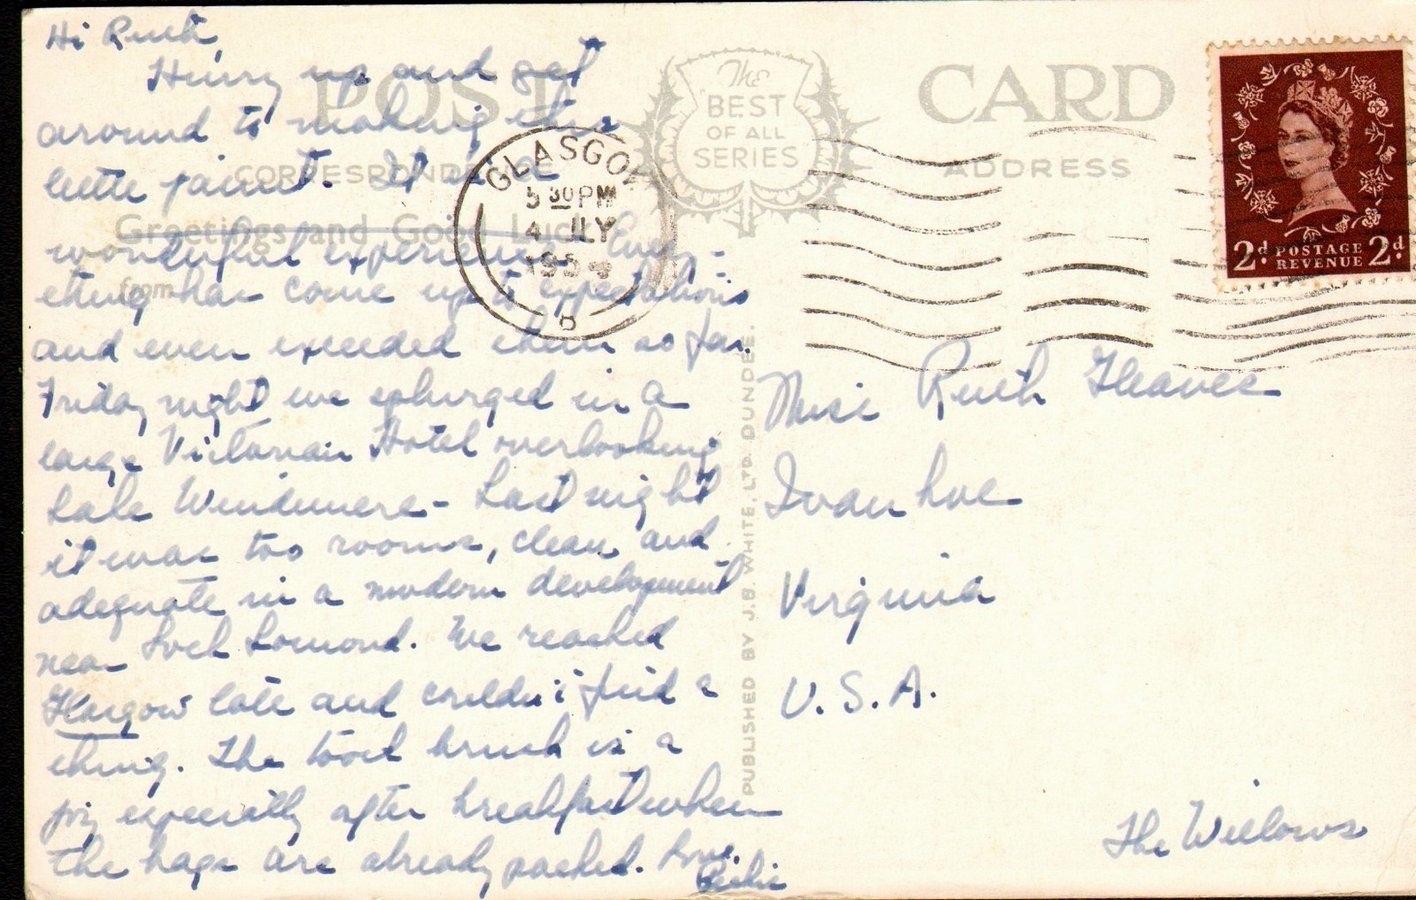 Hi Ruth,
Hurry up and get
around to making this
little jaunt. It is a
wonderful experience. Every-
thing has come up to expectations
and even exceeded them so far.
Friday night we splurged in a
large Victorian Hotel overlooking
Lake Windemere - Last night
it was two rooms, clean and
adequate in a modern development
near Loch Lomond. We reached
Glasgow late and couldn't find a
thing. The tooth brush is a
joy especially after breakfast when
the bags are already packed. Love,
POST CARD
CORRESPONDENCE
ADDRESS
The
BEST
OF ALL
SERIES
Greetings and Good Luck
from
GLASGOW
5 30 PM
4 JLY
195
B
2d POSTAGE 2d
REVENUE
PUBLISHED BY J.B. WHITE, LTD. DUNDEE.
Miss Ruth Gleaves
Ivanhoe
Virginia
U.S.A.
The Willows